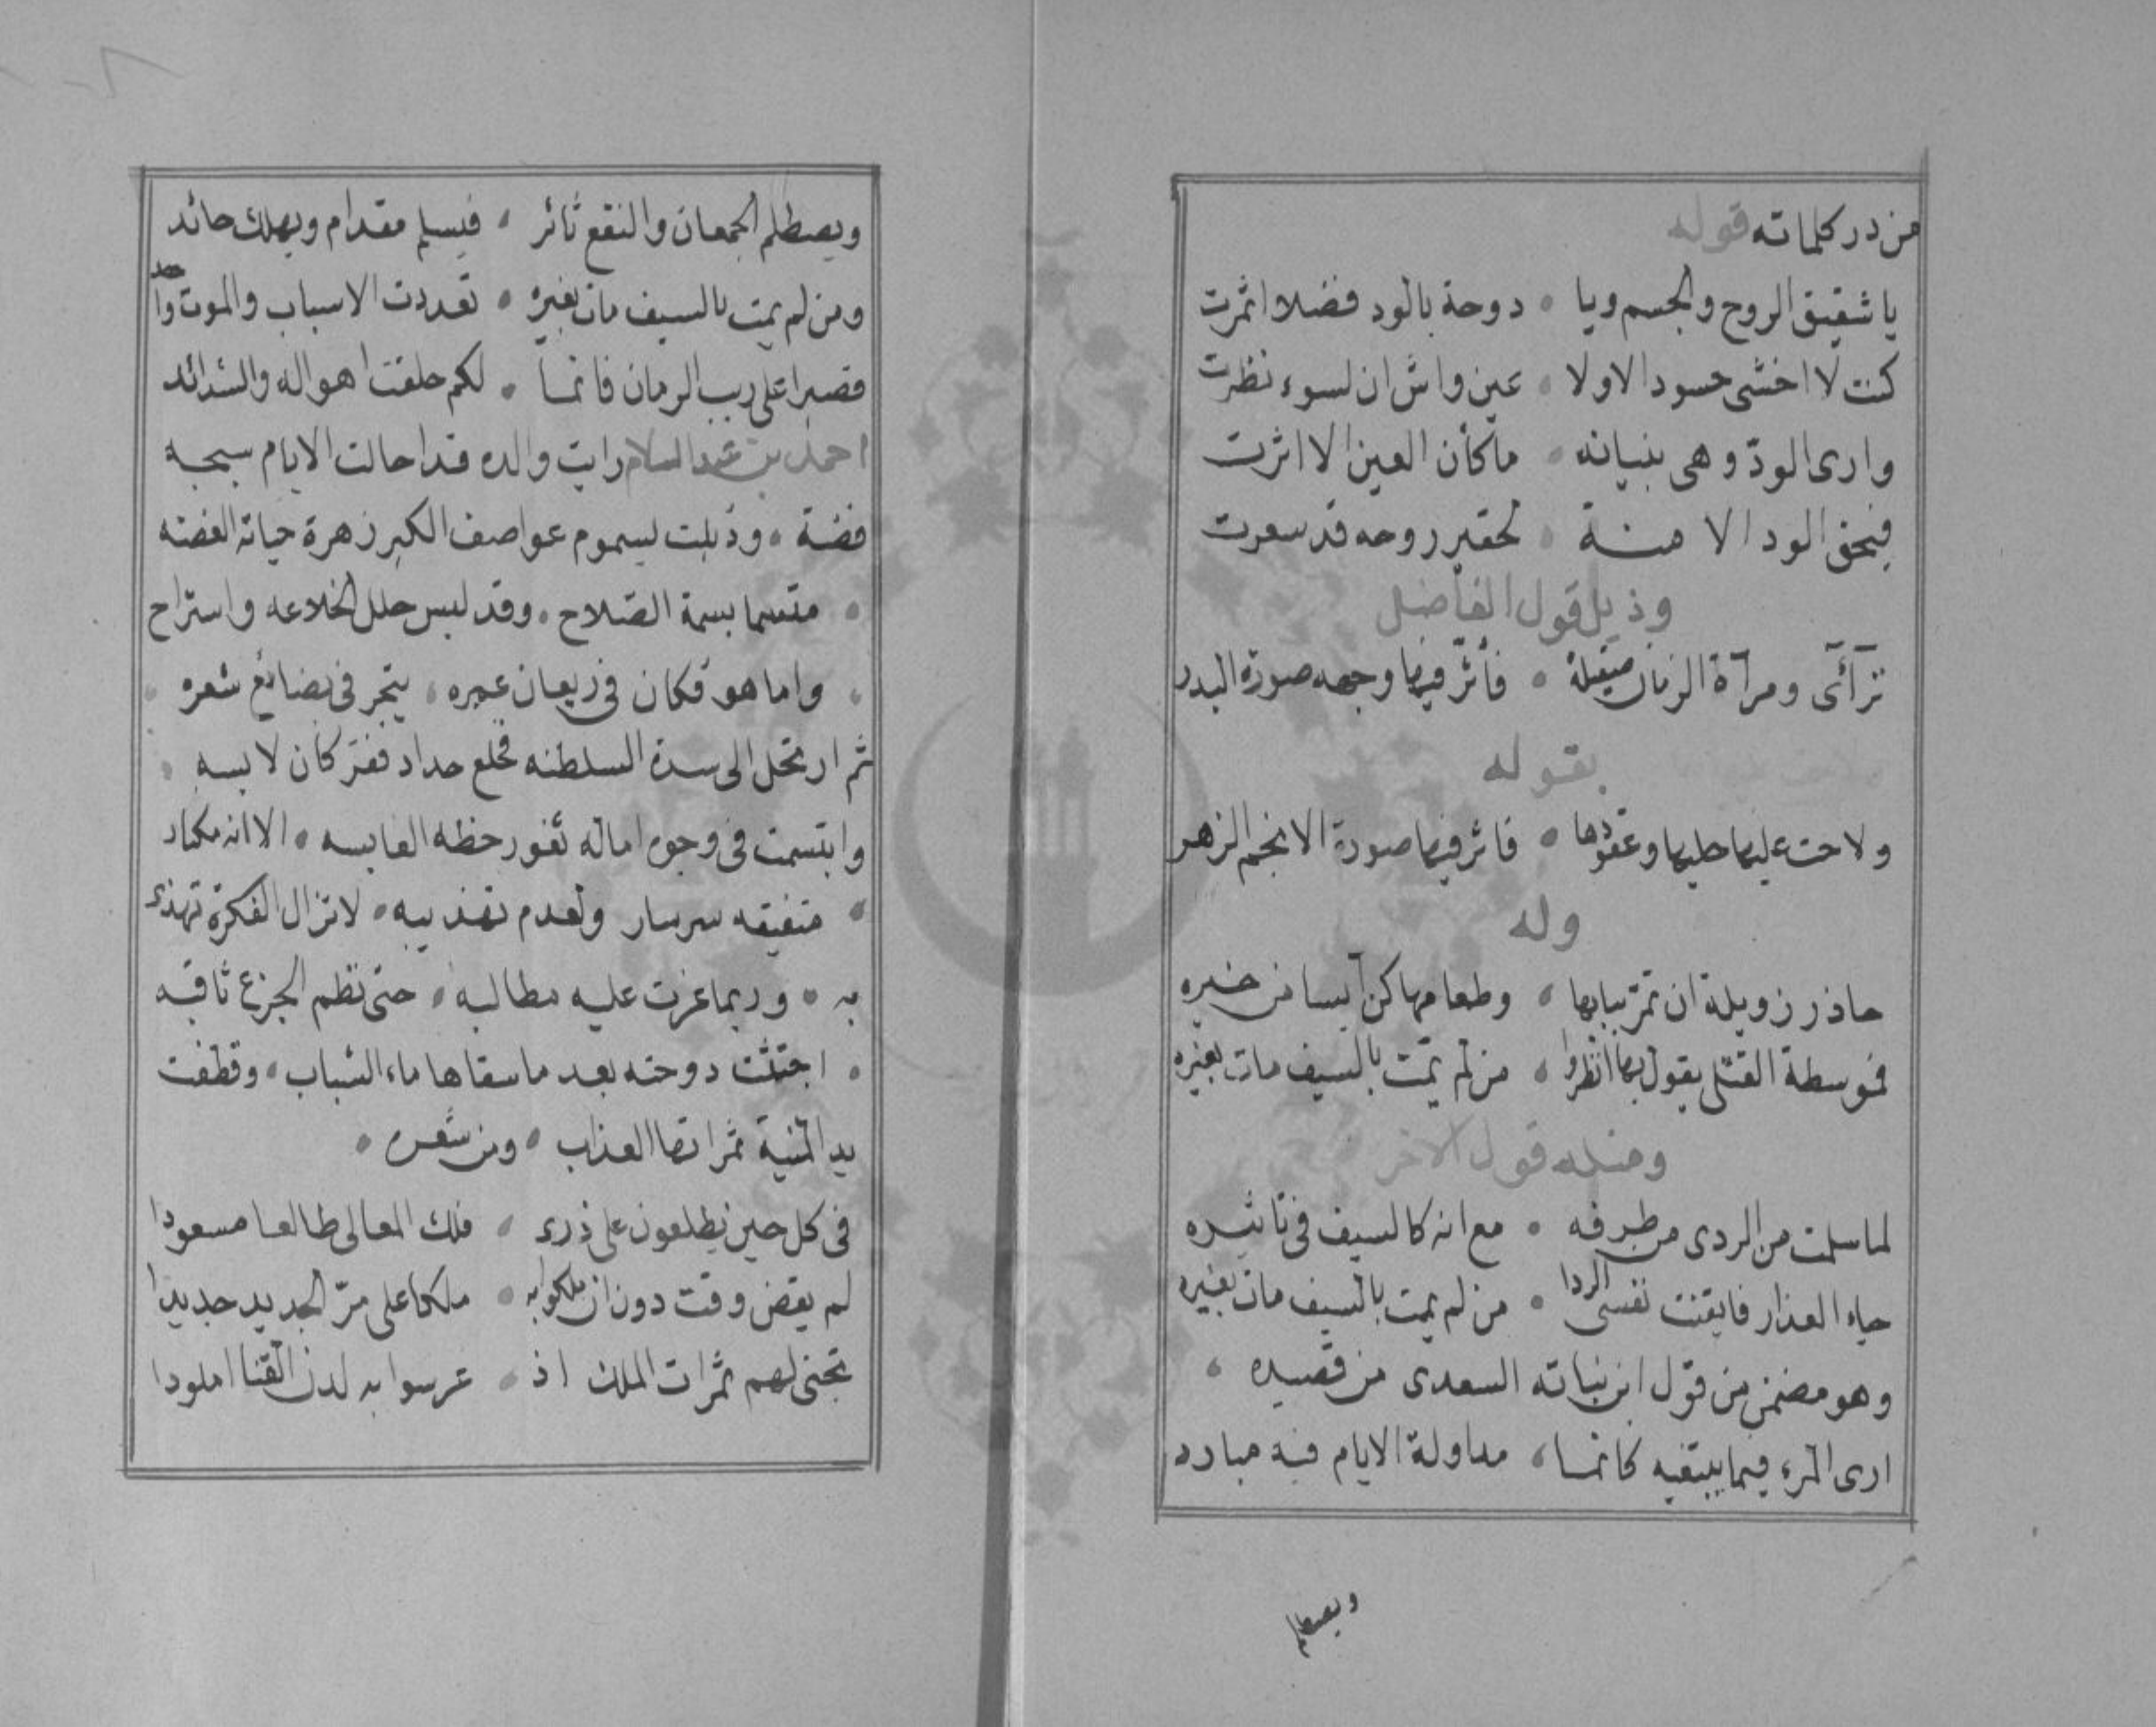 من درر كلماته قوله
يا شقيق الروح والجسم ويا • دوحة بالود فضلا اثمرت
كنت لا اخشى حسود الاولا • عين واش ان لسوء نظرت
وارى الودّ وهى بنيانه • ما كأن العين الا اثرت
فبحق الود الا منة • لحقير روحه قد سعرت
وذيل قول الفاضل
ترآئى ومرآة الزمان صقيلة • فأثّر فيها وجهه صورة البدر
بقوله
ولاحت عليها حليها وعقودها • فاثر فيها صورة الانجم الزهر
وله
حاذر زويلة ان تمرّ ببابها • وطعامها كن آيسا من خيره
فموسطة القتلى يقول بها انظروا • من لم يمت بالسيف مات بغيره
ومثله قول الاخر
لما سلمت من الردى من طرفه • مع انه كالسيف فى تاثيره
حياه العذار فايقنت نفسى الردا • من لم يمت بالسيف مات بغيره
وهو مضمن من قول ابن نباته السعدى من قصيده •
ارى المرء فيما يبتغيه كانما • مداولة الايام فيه مبارد
ويصطلم
ويصطلم الجمعان والنقع ثائر • فيسلم مقدام ويهلك حائد
ومن لم يمت بالسيف مات بغيره • تعددت الاسباب والموت واحد
فصبرا على ريب الزمان فانما • لكم خلقت اهواله والشدائد
احمد بن عبد السلام رايت والده قد احالت الايام سبجه
فضة • وذبلت بسموم عواصف الكبر زهرة حياته الغضه
• متسما بسمة الصّلاح • وقد لبس حلل الخلاعه واستراح
• واما هو فكان فى ريعان عمره • يتجر فى بضائع شعره •
ثم ارتحل الى سدة السلطنه فخلع حداد فقر كان لابسه •
وابتسمت فى وجوه اماله ثغور حظه العابسه • الا انه مكثار
• متفيقه سرسار ولعدم تهذيبه • لا تزال الفكرة تهذى
به • وربما عزت عليه مطالبه • حتى نظم الجزع ثاقبه
• اجتثت دوحته بعد ما سقاها ماء الشباب • وقطفت
يد المنية ثمراتها العذاب • ومن شعره •
فى كل حين يطلعون على ذرى • فلك المعالى طالعا مسعودا
لم يقض وقت دون ان ملكوا به • ملكا على مرّ الجديد جديدا
تجنى لهم ثمرات الملك اذ • غرسوا به لدن القنا املودا